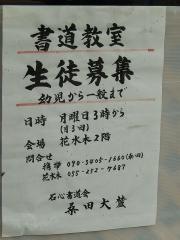 書道教室
生徒募集
幼児から一般まで
日時 月曜日3時から
(月3回)
会場 花水木2階
問合せ
携帯 090-3405-1660(桑田)
花水木 055-252-7687
石心書道会
桑田大